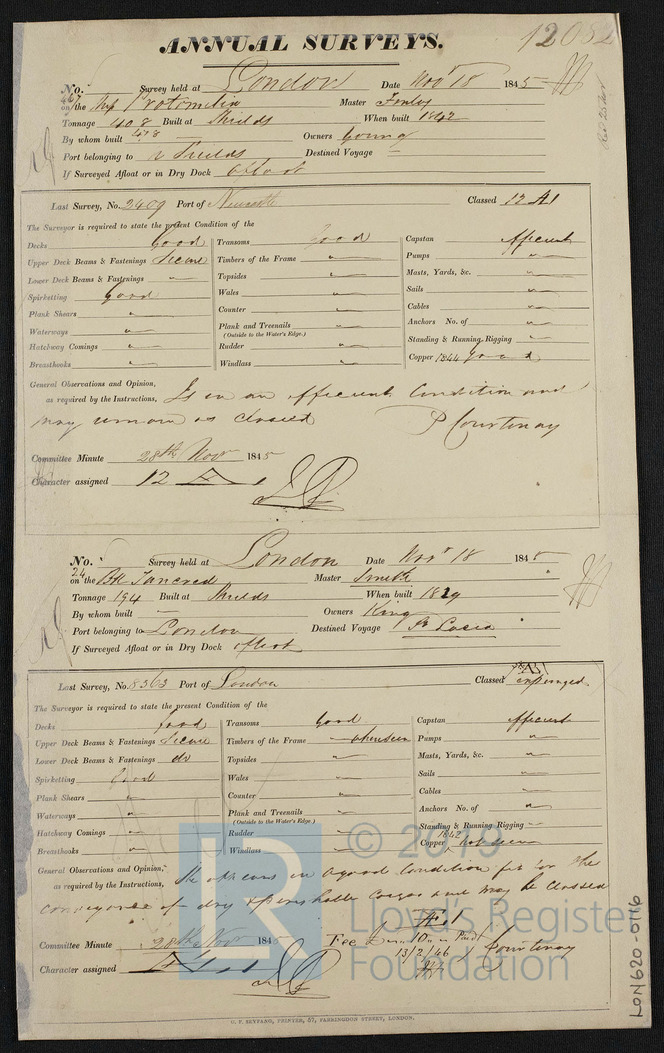 ANNUAL SURVEYS.
12082
No. Survey held at London Date Novr 18 1845
on the Ship Master
Tonnage 408 Built at Shields When built 1842
By whom built 478 Owners Young
Port belonging to Shields Destined Voyage —
If Surveyed Afloat or in Dry Dock afloat
Last Survey, No. 2409 Port of Newcastle Classed 12 A1
The Surveyor is required to state the present Condition of the
Decks Good Transoms Good Capstan Efficient
Upper Deck Beams & Fastenings Secure Timbers of the Frame " Pumps "
Lower Deck Beams & Fastenings " Topsides " Masts, Yards, &c. "
Spirketting Good Wales " Sails "
Plank Shears " Counter " Cables "
Waterways " Plank and Treenails " Anchors No. of "
(Outside to the Water's Edge.)
Hatchway Comings " Rudder " Standing & Running Rigging "
Breasthooks " Windlass " Copper 1844 good
General Observations and Opinion, Is in an efficient Condition and
as required by the Instructions,
may remain as classed P Courtenay
Committee Minute 28th Novr 1845
Character assigned 12 A 1
No. 24 Survey held at London Date Novr 18 1845
on the Bk Tancred Master Smith
Tonnage 194 Built at Shields When built 1829
By whom built — Owners King
Port belonging to London Destined Voyage St Lucia
If Surveyed Afloat or in Dry Dock afloat
Last Survey, No. 8363 Port of London Classed expunged.
The Surveyor is required to state the present Condition of the
Decks Good Transoms Good Capstan Efficient
Upper Deck Beams & Fastenings Secure Timbers of the Frame Pumps "
Lower Deck Beams & Fastenings do Topsides " Masts, Yards, &c. "
Spirketting Good Wales " Sails "
Plank Shears " Counter " Cables "
Waterways " Plank and Treenails " Anchors No. of "
(Outside to the Water's Edge.)
Hatchway Comings " Rudder " Standing & Running Rigging "
Breasthooks " Windlass " Copper 1842 not seen
General Observations and Opinion, in a good Condition fit for the
as required by the Instructions,
conveyance of dry & perishable cargoes and may be classed
Æ 1
Committee Minute 28th Novr 1845 Fee 10 Paid
13/2/46 P Courtenay
Character assigned Æ 1
G. F. SEYFANG, PRINTER, 57, FARRINGDON STREET, LONDON.
LON620-0116
© 2019
Lloyd's Register
Foundation